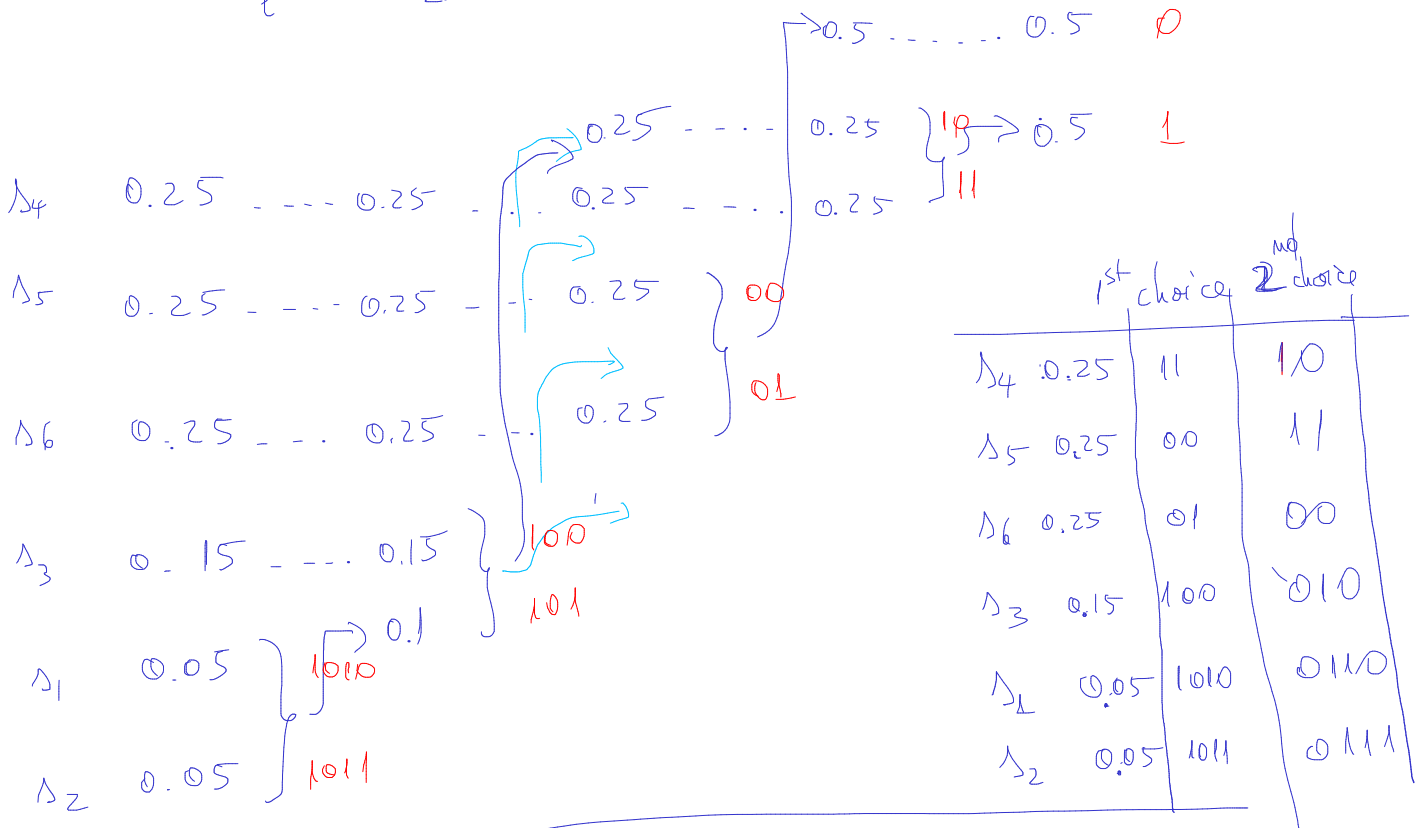 0.5 ...... 0.5 0
0.25 ---- 0.25 10 0.5 1
s4 0.25 ---- 0.25 ... 0.25 ---- 0.25 11
s5 0.25 ---- 0.25 --- 0.25 00
01
s6 0.25 ---- 0.25 --- 0.25
s3 0.15 ---- 0.15 100
101
0.1
s1 0.05 1010
s2 0.05 1011
1st choice 2nd choice
s4 0.25 11 10
s5 0.25 00 11
s6 0.25 01 00
s3 0.15 100 010
s1 0.05 1010 0110
s2 0.05 1011 0111